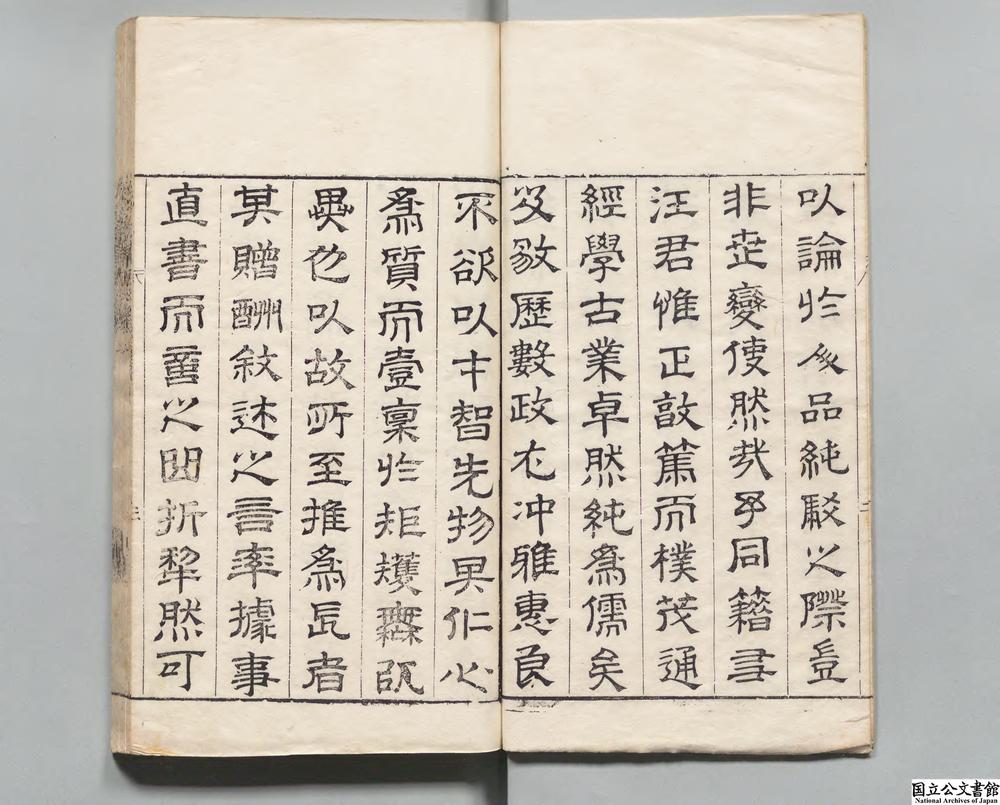 以論於人品純駁之際豈
非世變使然哉予同籍友
汪君惟正敦篤而樸茂通
經學古業卓然純為儒矣
及敭歷數政尤沖雅惠良
不欲以才智先物果仁心
為質而壹稟於矩矱無
異也以故所至推為長者
其贈酬敘述之言率據事
直書而意之曲折犂然可
国立公文書館
National Archives of Japan